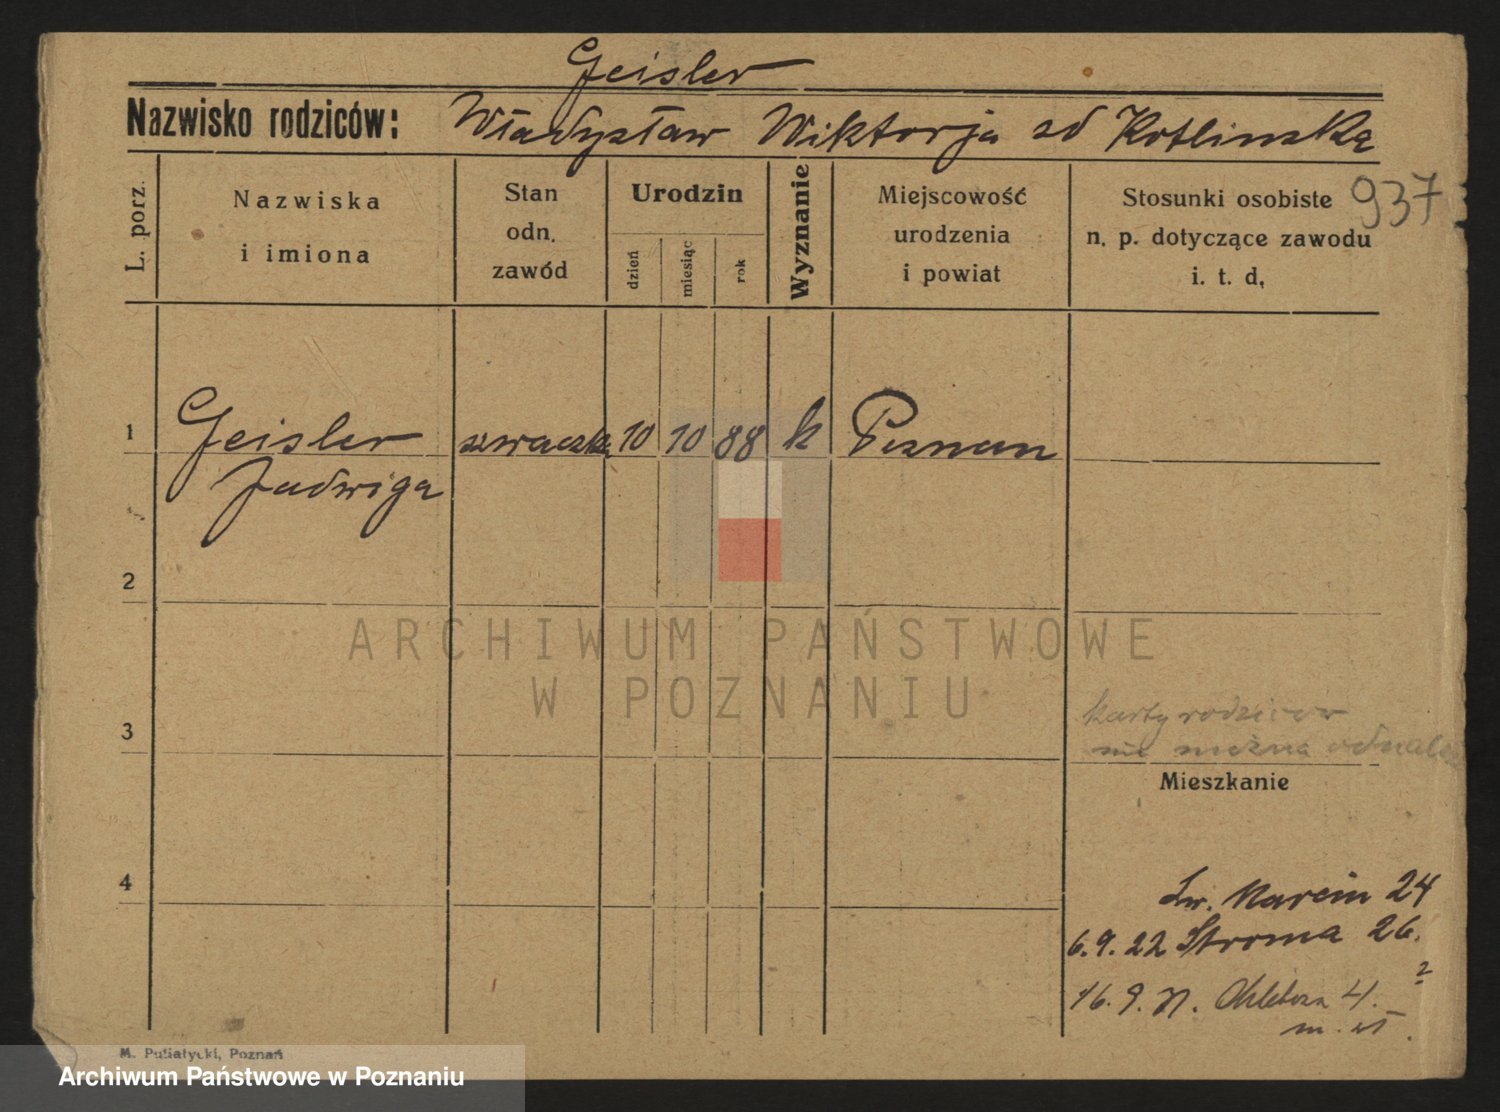 Geisler
Nazwisko rodziców: Władysław Wiktorja zd Kotlinska
L. porz.
Nazwiska
i imiona
Stan
odn.
zawód
Urodzin
dzień
miesiąc
rok
Wyznanie
Miejscowość
urodzenia
i powiat
Stosunki osobiste
n. p. dotyczące zawodu
i. t. d.
937
1 Geisler szwaczka 10 10 88 k Poznan
Jadwiga
2
ARCHIWUM PAŃSTWOWE
W POZNANIU
3
karty rodziców
nie można odnaleź
Mieszkanie
4
Św. Marcin 24
6.9.22 Stroma 26.
16. 9. Chlebowa 4.
M. Putiatycki, Poznań
Archiwum Państwowe w Poznaniu